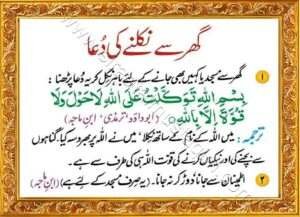 گھر سے نکلنے کی دُعا
۱ گھر سے مسجد یا کہیں بھی جانے کے لئے باہر نکل کر یہ دُعا پڑھنا :
بِسْمِ اللّٰهِ تَوَكَّلْتُ عَلَى اللّٰهِ لَاحَوْلَ وَلَا
قُوَّةَ اِلَّا بِاللّٰهِ (ابوداؤد ، ترمذی ، ابن ماجہ)
ترجمہ : میں اللہ کے نام کے ساتھ نکلا میں نے اللہ پر بھروسہ کیا، گناہوں
سے بچنے کی اور نیکیاں کرنے کی قوت اللہ ہی کی طرف سے ہے۔
۲ اطمینان سے جانا دوڑ کر نہ جانا۔ (یہ صرف مسجد کے لئے ہے) (ابن ماجہ)